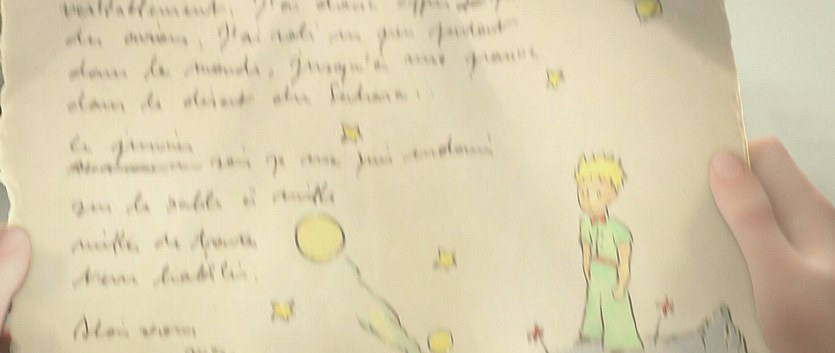 véritablement, J'ai donc appris
des avions. J'ai volé un peu partout
dans le monde, jusqu'à une panne
dans le désert du Sahara.
Le premier
soir je me suis endormi
sur le sable à mille
milles de toute
terre habitée.
Alors vous